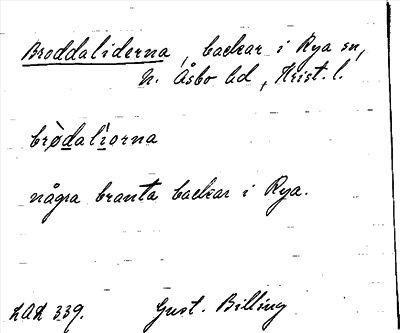 Broddaliderna, backar i Rya sn,
N. Åsbo hd, Krist. l.
brø̀dalìorna
några branta backar i Rya.
LAL 339.
Gust. Billing